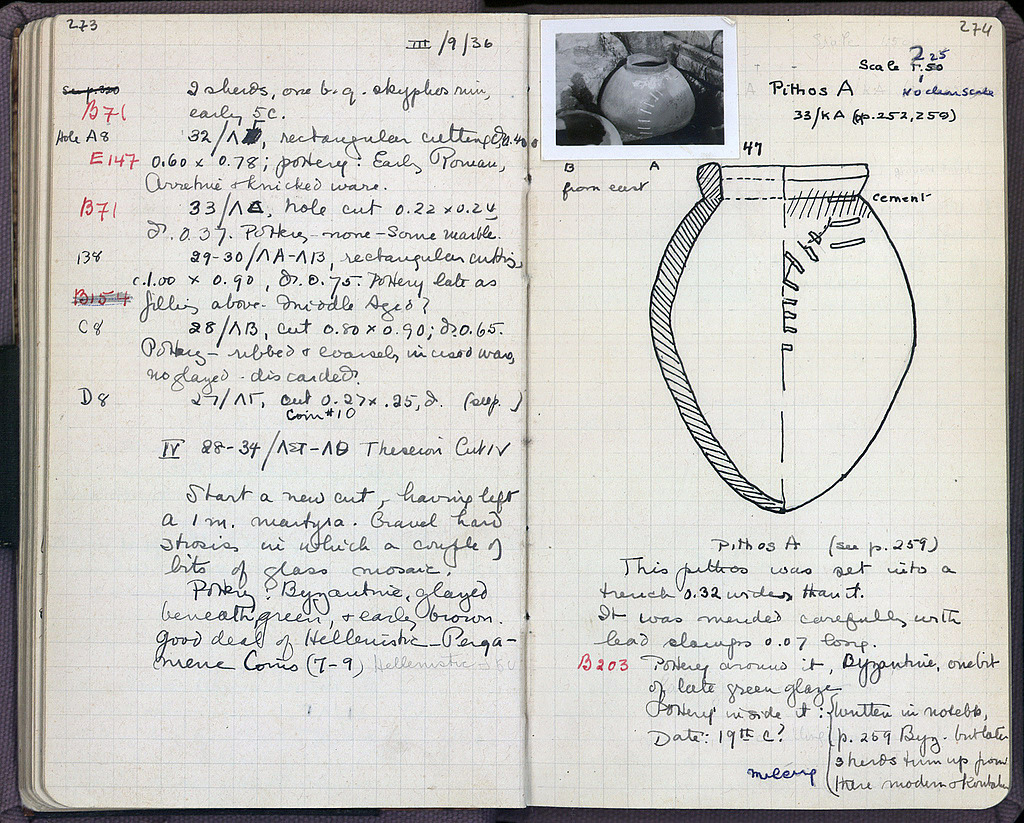 273
III/9/36
2 sherds, one b.g. skyphos rim,
B71 early 5c.
Hole A8 32/Λ, rectangular cutting
E147 0.60 x 0.78; pottery: Early Roman,
Arretine & knicked ware.
B71 33/ΛΔ, hole cut 0.22 x 0.24
D. 0.37. Pottery - none - Some marble.
B8 29-30/ΛA-ΛB, rectangular cutting
c.1.00 x 0.90, d. 0.75. Pottery late as
B154 filling above. Middle Ages?
C8 28/ΛB, cut 0.80 x 0.90; d. 0.65.
Pottery - ribbed & coarsely incised ware,
no glazed - discarded.
D8 27/ΛΓ, cut 0.27 x .25, d. (see p. )
Coin #10
IV 28-34/ΛΣΤ-ΛΘ Theseion Cut IV
Start a new cut, having left
a 1 m. martyra. Gravel hard
strosis in which a couple of
bits of glass mosaic.
Pottery: Byzantine, glazed
beneath green, & early brown.
Good deal of Hellenistic - Perga-
mene Coins (7-9) Hellenistic
274
Scale 1:50
2 25
No clean scale
Pithos A
33/KA (pp. 252, 259)
47
B A
from east
cement
Pithos A (see p. 259)
This pithos was set into a
trench 0.32 wider than it.
It was mended carefully with
lead clamps 0.07 long.
B203 Pottery around it, Byzantine, one bit
of late green glaze
Pottery inside it: written in notebk,
Date: 19th C? p. 259 Byz. but later
sherds turn up from
there modern &